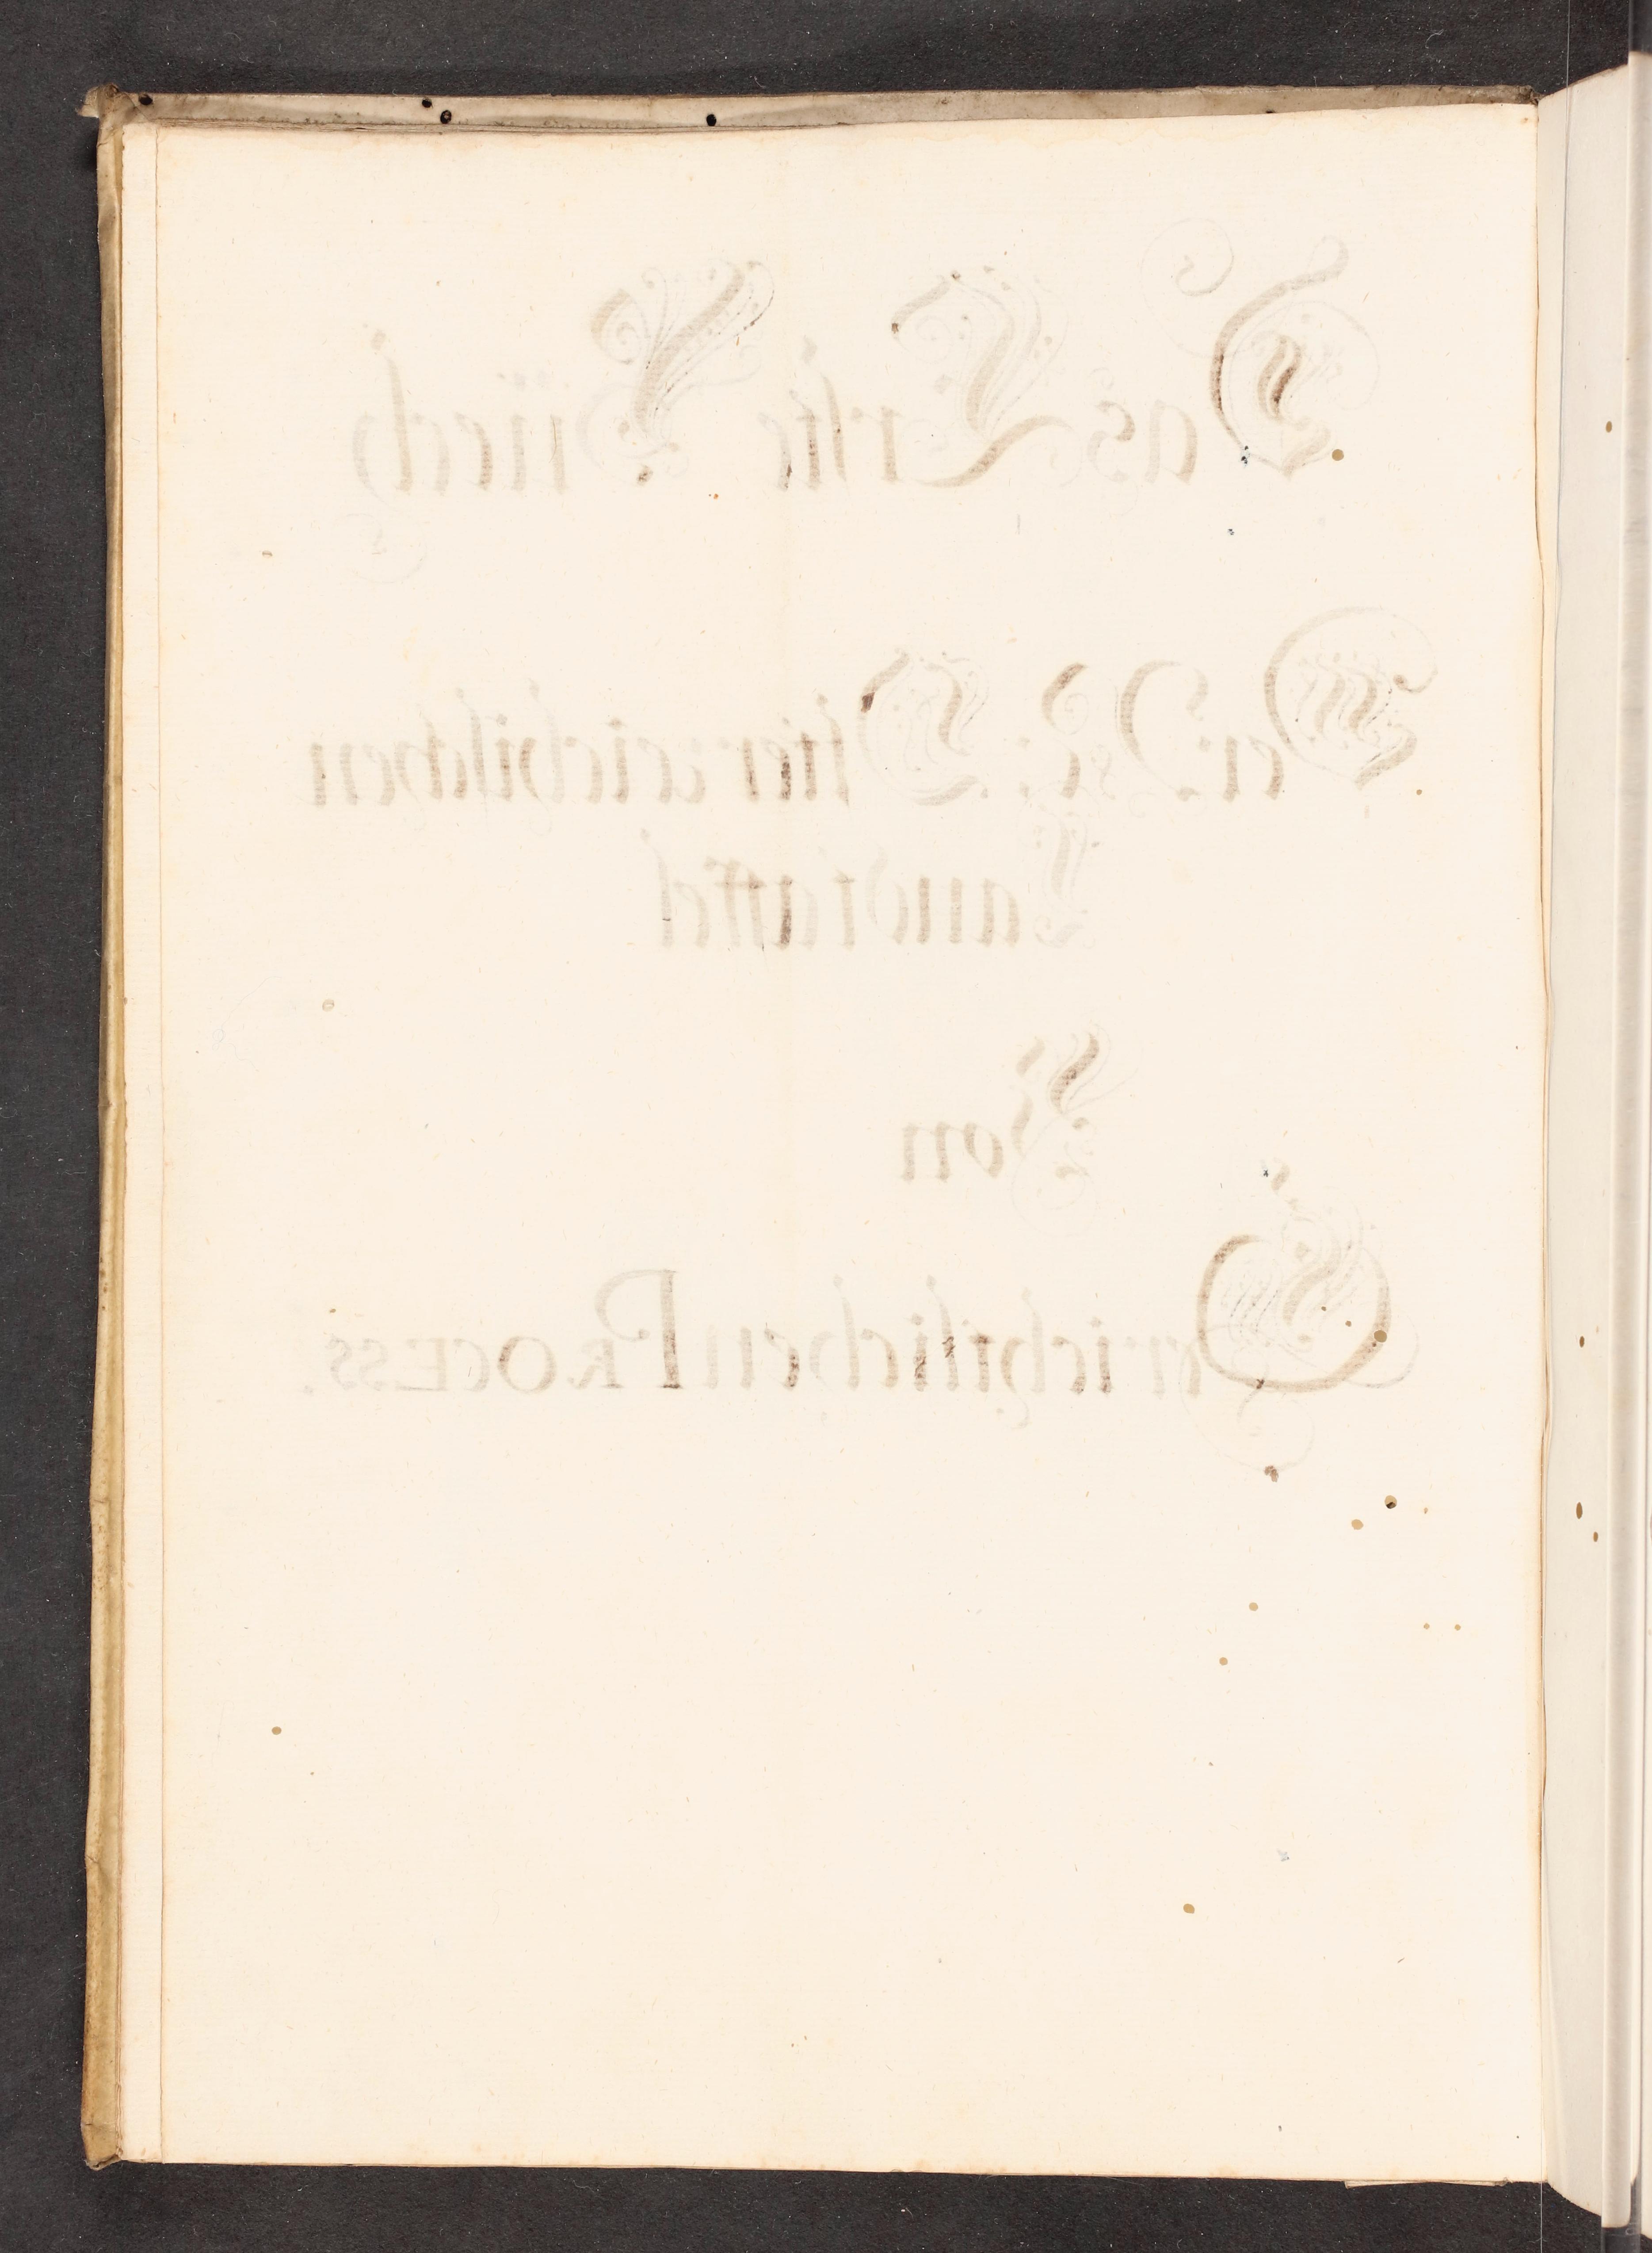 Das Erste Büech
Der O: Ö: Österreichischen
Landtaffel
Von
Gerichtlichen PROCESS.